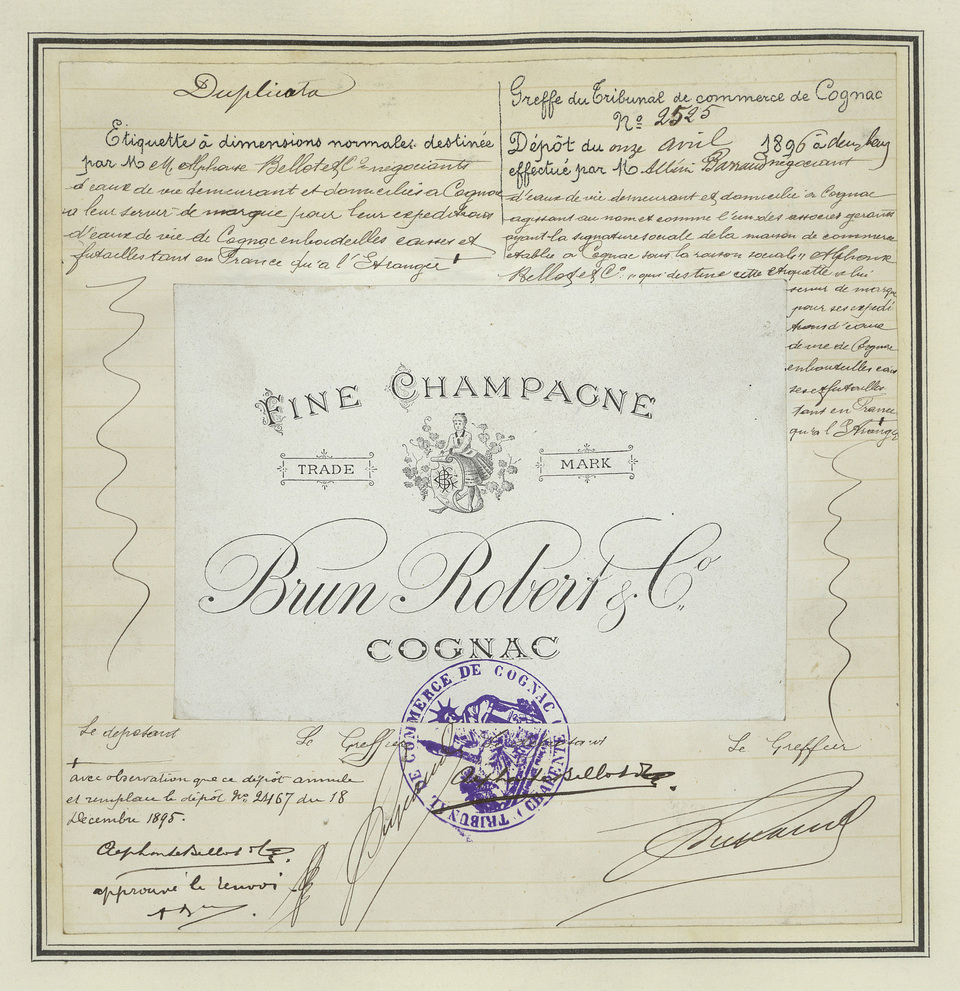 Duplicata
Etiquette à dimensions normales destinée
par M M Alphonse Bellot & Cº négociants
d'eaux de vie demeurant et domiciliés à Cognac
a leur servir de marque pour leur expeditions
d'eaux de vie de Cognac en bouteilles caisses et
futailles tant en France qu'a l'Etranger
Greffe du Tribunal de commerce de Cognac
Nº 2525
Dépôt du onze avril 1896 à deux
effectué par M négociant
d'eaux de vie demeurant et domicilié à Cognac
agissant au nom et comme l'un des associés gerants
ayant la signature sociale de la maison de commerce
etablie à Cognac sous la raison sociale „ Alphonse
Bellot & Cº „ qui destine cette étiquette a lui
servir de marque
pour ses expedi
tions d'eaux
de vie de Cognac
en bouteilles cais
ses et futailles
tant en France
qu'a l'Etranger
FINE CHAMPAGNE
TRADE MARK
Brun Robert & Cº
COGNAC
TRIBUNAL DE COMMERCE DE COGNAC (CHARENTE)
Le deposant
Le Greffier
Le Greffier
avec observation que ce dépôt annule
et remplace le dépôt Nº 24167 du 18
Décembre 1895.
Alphonse Bellot & Cº
Alphonse Bellot & Cº
approuvé le renvoi